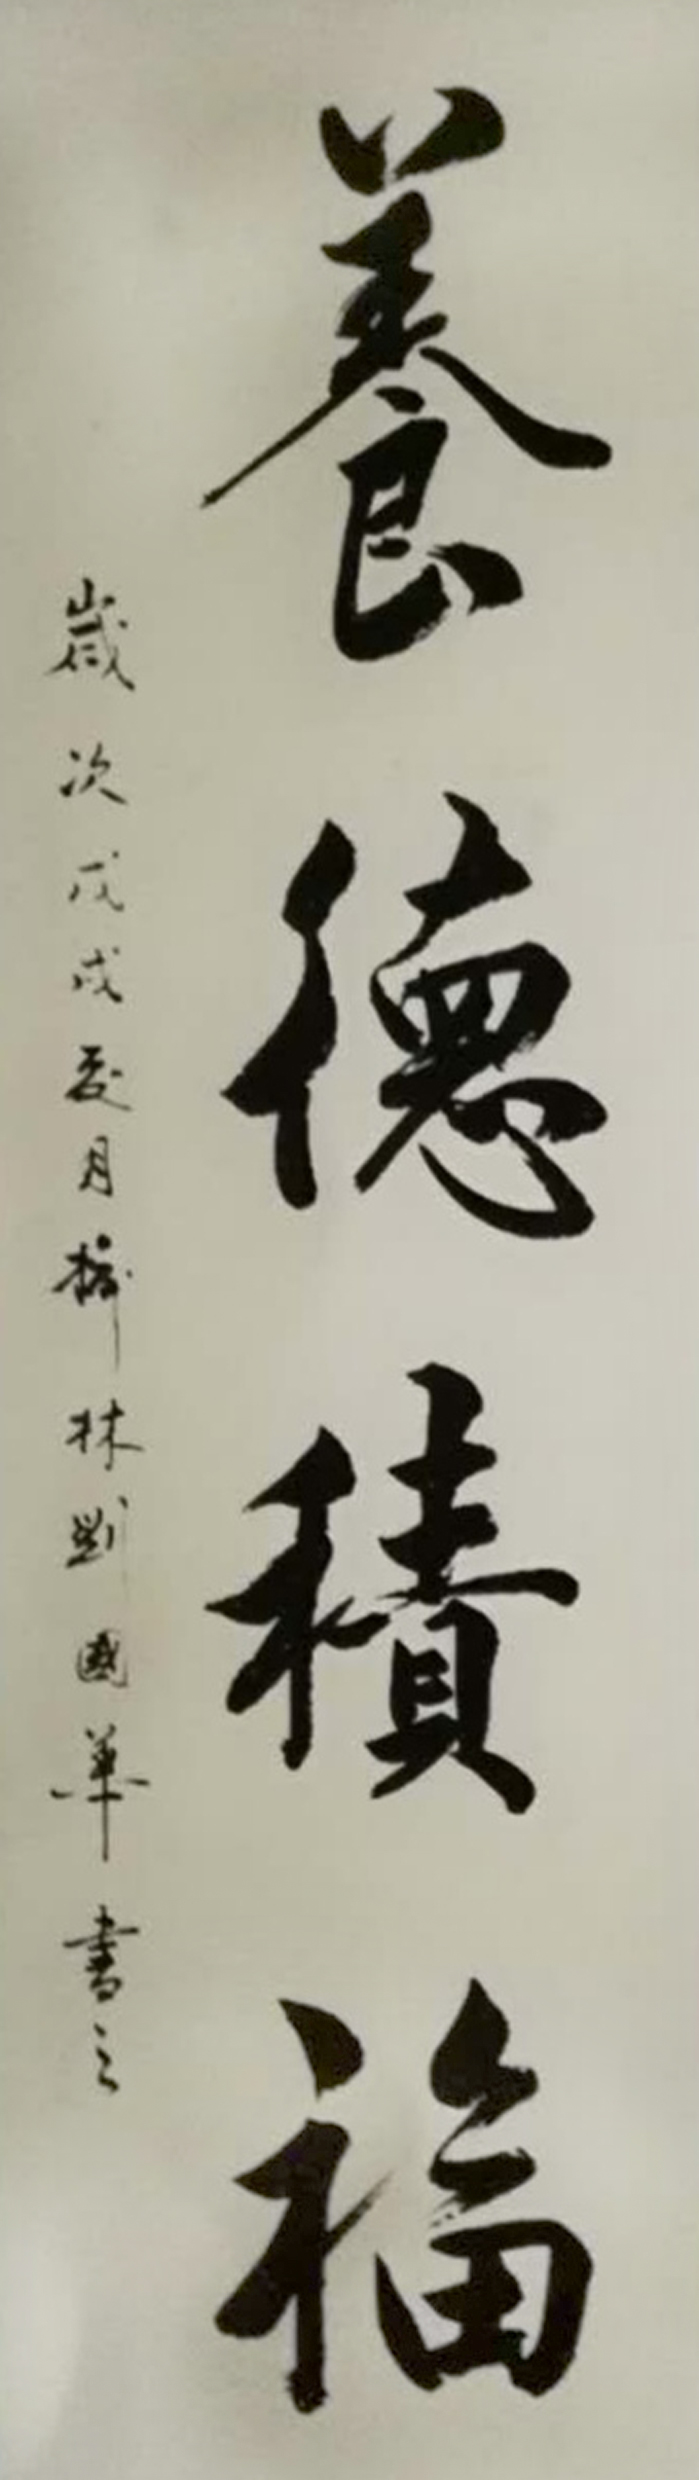 養德積福
歲次戊戌夏月榆林劉國華書之